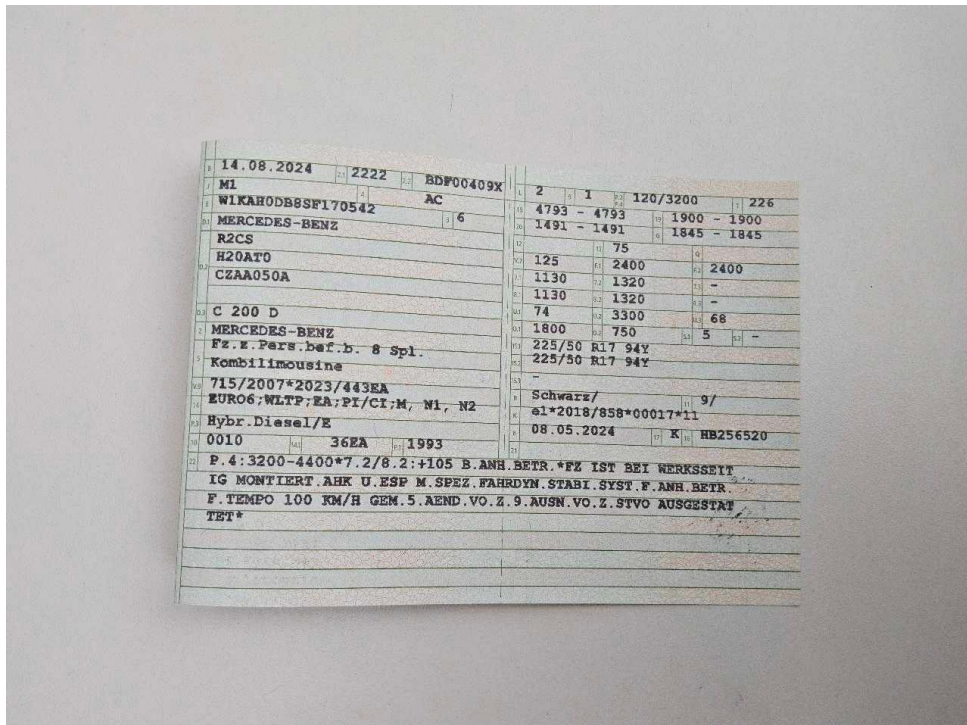 B 14.08.2024 2.1 2222 2.2 BDF00409X
J M1 4 AC
E W1KAH0DB8SF170542 3 6
D.1 MERCEDES-BENZ
R2CS
D.2 H20AT0
CZAA050A
D.3 C 200 D
2 MERCEDES-BENZ
5 Fz.z.Pers.bef.b. 8 Spl.
Kombilimousine
V.9 715/2007*2023/443EA
14 EURO6;WLTP;EA;PI/CI;M, N1, N2
P.3 Hybr.Diesel/E
10 0010 14.1 36EA P.1 1993
L 2 9 1 P.2 P.4 120/3200 T 226
18 4793 - 4793 19 1900 - 1900
20 1491 - 1491 G 1845 - 1845
12 13 75 Q
V.7 125 F.1 2400 F.2 2400
7.1 1130 7.2 1320 7.3 -
8.1 1130 8.2 1320 8.3 -
U.1 74 U.2 3300 U.3 68
O.1 1800 O.2 750 S.1 5 S.2 -
15.1 225/50 R17 94Y
15.2 225/50 R17 94Y
15.3 -
R Schwarz/ 11 9/
K e1*2018/858*00017*11
6 08.05.2024 17 K 16 HB256520
21
22 P.4:3200-4400*7.2/8.2:+105 B.ANH.BETR.*FZ IST BEI WERKSSEIT
IG MONTIERT.AHK U.ESP M.SPEZ.FAHRDYN.STABI.SYST.F.ANH.BETR.
F.TEMPO 100 KM/H GEM.5.AEND.VO.Z.9.AUSN.VO.Z.STVO AUSGESTAT
TET*